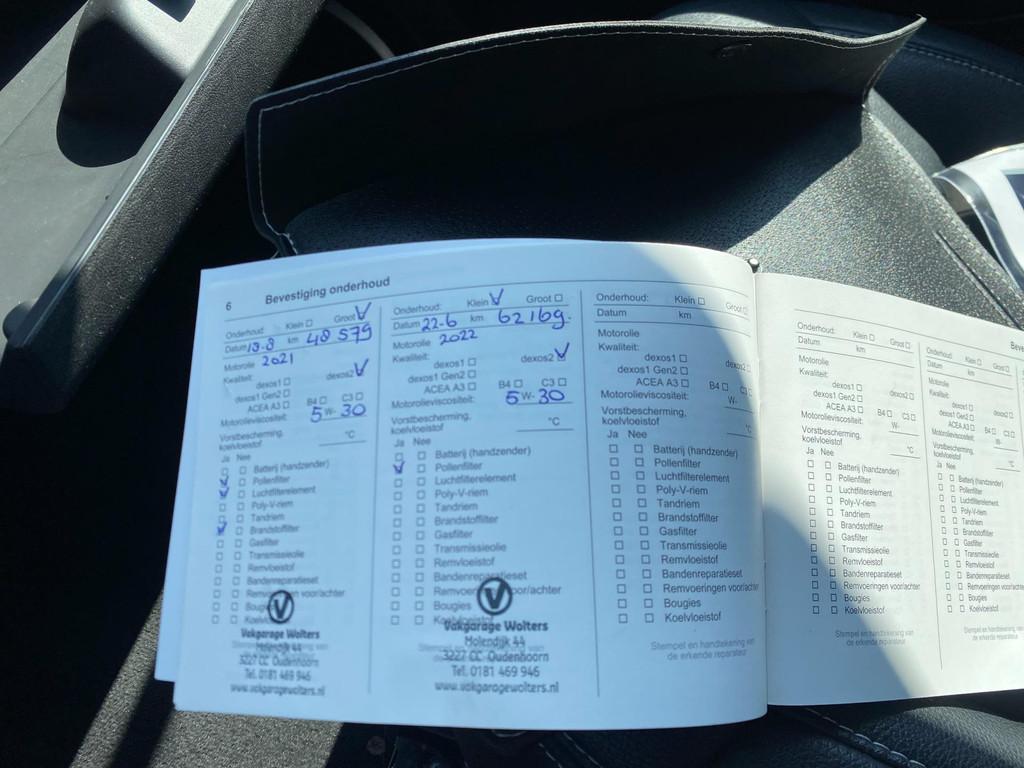 6 Bevestiging onderhoud
Onderhoud: Klein Groot V
Datum 13-8 km 48 579
Motorolie 2021
Kwaliteit:
dexos1 dexos2 V
dexos1 Gen2
ACEA A3 B4 C3
Motorolieviscositeit: 5 W- 30
Vorstbescherming,
koelvloeistof °C
Ja Nee
Batterij (handzender)
Pollenfilter
Luchtfilterelement
Poly-V-riem
Tandriem
Brandstoffilter
Gasfilter
Transmissieolie
Remvloeistof
Bandenreparatieset
Remvoeringen voor/achter
Bougies
Koelvloeistof
Vakgarage Wolters
Molendijk 44
3227 CC Oudenhoorn
Tel. 0181 469 946
www.vakgaragewolters.nl
Onderhoud: Klein V Groot
Datum 22-6 km 62169.
Motorolie 2022
Kwaliteit:
dexos1 dexos2 V
dexos1 Gen2
ACEA A3 B4 C3
Motorolieviscositeit: 5 W- 30
Vorstbescherming,
koelvloeistof °C
Ja Nee
Batterij (handzender)
Pollenfilter
Luchtfilterelement
Poly-V-riem
Tandriem
Brandstoffilter
Gasfilter
Transmissieolie
Remvloeistof
Bandenreparatieset
Remvoeringen voor/achter
Bougies
Koelvloeistof
Vakgarage Wolters
Molendijk 44
3227 CC Oudenhoorn
Tel. 0181 469 946
www.vakgaragewolters.nl
Onderhoud: Klein Groot
Datum km
Motorolie
Kwaliteit:
dexos1 dexos2
dexos1 Gen2
ACEA A3 B4 C3
Motorolieviscositeit: W-
Vorstbescherming,
koelvloeistof °C
Ja Nee
Batterij (handzender)
Pollenfilter
Luchtfilterelement
Poly-V-riem
Tandriem
Brandstoffilter
Gasfilter
Transmissieolie
Remvloeistof
Bandenreparatieset
Remvoeringen voor/achter
Bougies
Koelvloeistof
Stempel en handtekening van
de erkende reparateur
Onderhoud: Klein Groot
Datum km
Motorolie
Kwaliteit:
dexos1 dexos2
dexos1 Gen2
ACEA A3 B4 C3
Motorolieviscositeit: W-
Vorstbescherming,
koelvloeistof °C
Ja Nee
Batterij (handzender)
Pollenfilter
Luchtfilterelement
Poly-V-riem
Tandriem
Brandstoffilter
Gasfilter
Transmissieolie
Remvloeistof
Bandenreparatieset
Remvoeringen voor/achter
Bougies
Koelvloeistof
Stempel en handtekening van
de erkende reparateur
Be
Onderhoud: Klein
Datum km
Motorolie
Kwaliteit:
dexos1
dexos1 Gen2
ACEA A3 B4
Motorolieviscositeit:
Vorstbescherming,
koelvloeistof
Ja Nee
Batterij (handzender)
Pollenfilter
Luchtfilterelement
Poly-V-riem
Tandriem
Brandstoffilter
Gasfilter
Transmissieolie
Remvloeistof
Bandenreparatieset
Remvoeringen
Bougies
Koelvloeistof
Stempel en handtekening
de erkende reparateur